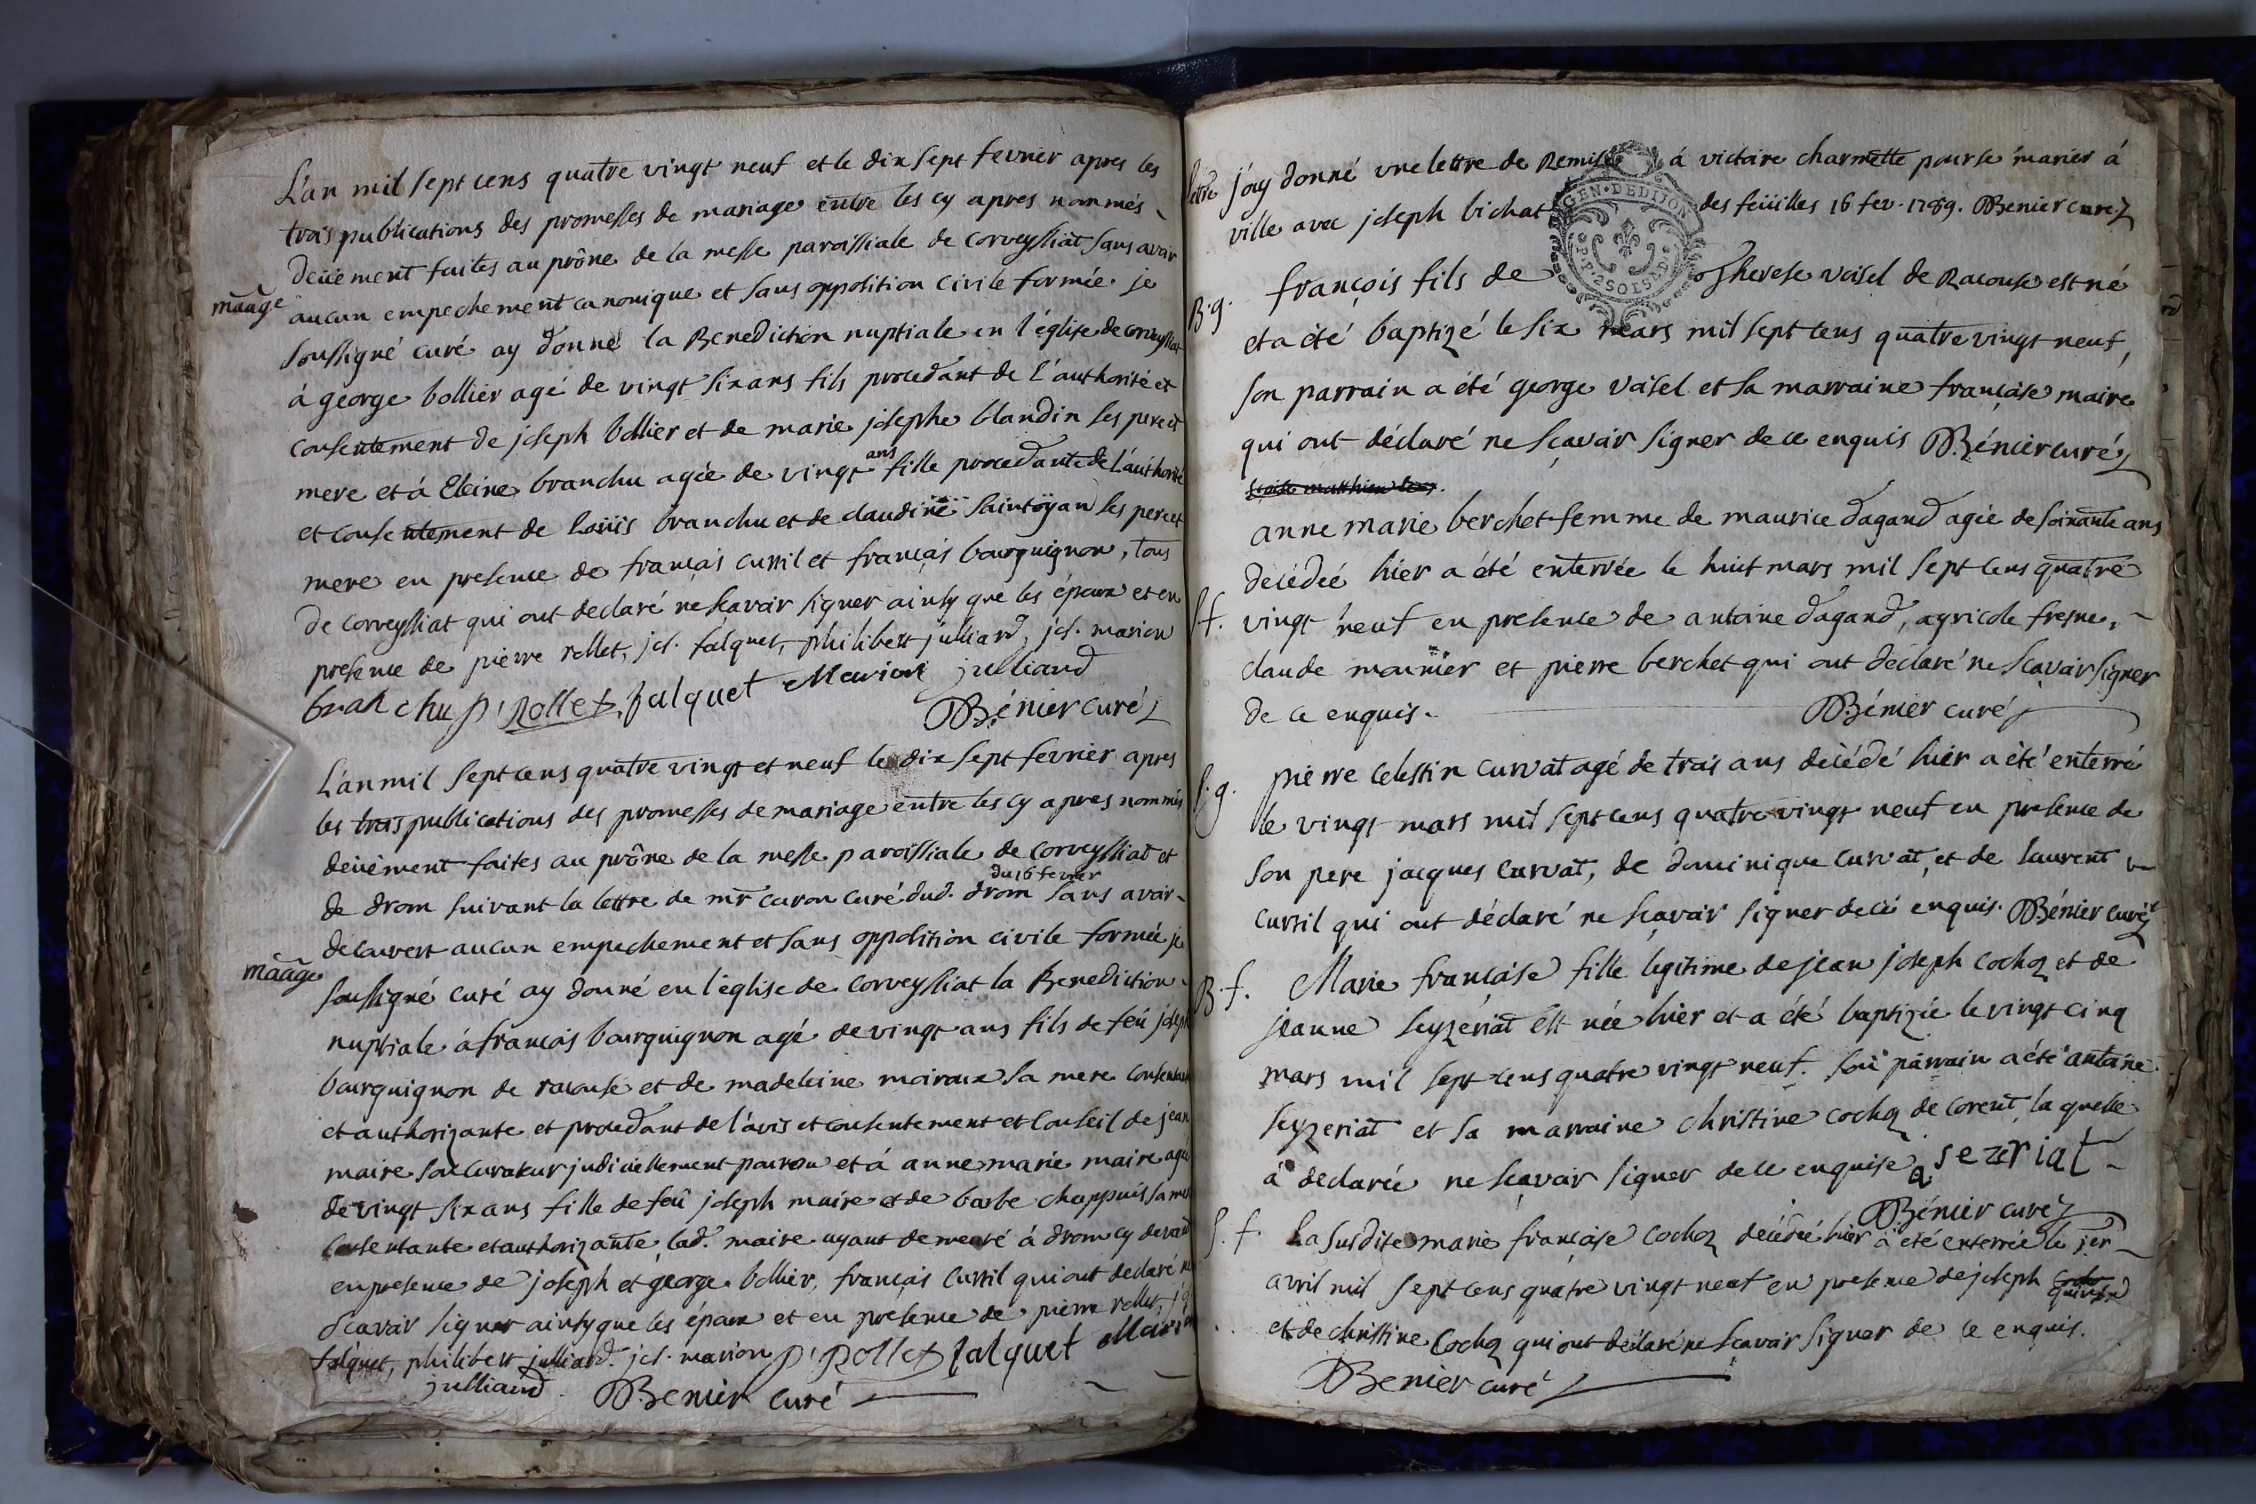 L'an mil sept cens quatre vingt neuf et le dix sept fevrier apres les
trois publications des promesses de mariage entre les cy apres nommés
deüement faites au prône de la messe paroissiale de corveyssiat sans avoir
maage
aucun empechement canonique et sans opposition civile formée je
soussigné curé ay donné la Benediction nuptiale en l'église de corveyssiat
à george bollier agé de vingt six ans fils procedant de l'authorité et
consentement de joseph bollier et de marie josephe blandin ses pere et
mere et à Eleine branchu agée de vingt ans fille procedante de L'authorité
et consentement de Loüis branchu et de claudine saintoyan ses pere et
mere en presence de françois curril et françois bourguignon, tous
de corveyssiat qui ont declaré ne scavoir signer ainsy que les époux et en
presence de pierre rollet, jos. falquet, philibert julliard, jos. marion
branchu p. rollet falquet Marion julliand
Bénier curé
L'an mil sept cens quatre vingt et neuf le dix sept fevrier apres
les trois publications des promesses de mariage entre les cy apres nommés
deüement faites au prône de la messe paroissiale de corveyssiat et
du 16 fevrier
de drom suivant la lettre de mr curon curé dud. drom sans avoir
decouvert aucun empechement et sans opposition civile formée je
maage
soussigné curé ay donné en l'église de corveyssiat la Benediction
nuptiale à françois bourguignon agé de vingt ans fils de feû joseph
bourguignon de racouse et de madeleine moiroux sa mere consentante
et authorizante et procedant de l'avis et consentement et conseil de jean
maire son curateur judiciellement pourvu et à anne marie maire agée
de vingt six ans fille de feû joseph maire et de barbe chappuis sa mere
consentante et authorizante lad. maire ayant demeuré à drom cy devant
en presence de joseph et george bollier, françois curril qui ont declaré ne
scavoir signer ainsy que les époux et en presence de pierre rollet, jos.
falquet, philibert julliard. jos. marion p. rollet falquet Marion
julliand. Benier curé
lettre
j'ay donné une lettre de Remise à victoire charmette pour se marier à
ville avec joseph bichat des feüilles 16 fev. 1789. Benier curé
GEN. DE DIJON
B. g.
françois fils de Therese voisel de Racouse est né
et a été baptizé le six mars mil sept cens quatre vingt neuf,
son parrain a été george voisel et sa marraine françoise maire
qui ont déclaré ne sçavoir signer de ce enquis Bénier curé
anne marie berchet femme de maurice dagand agée de soixante ans
décédée hier a été enterrée le huit mars mil sept cens quatre
S. f.
vingt neuf en presence de antoine dagand, agricole fresne,
claude monnier et pierre berchet qui ont declaré ne scavoir signer
de ce enquis. Bénier curé
S. g.
pierre celestin curvat agé de trois ans décédé hier a été enterré
le vingt mars mil sept cens quatre vingt neuf en presence de
son pere jacques curvat, de dominique curvat, et de laurent
curril qui ont déclaré ne sçavoir signer de ce enquis. Bénier curé
B. f.
Marie françoise fille legitime de jean joseph cochoz et de
jeanne seyzeriat est née hier et a été baptizée le vingt cinq
mars mil sept cens quatre vingt neuf. son parrain a été antoine
seyzeriat et sa marraine christine cochoz de corent, la quelle
à declarée ne scavoir signer de ce enquise a sezeriat
Bénier curé
S. f.
La susdite marie françoise cochoz décédée hier à été enterrée le 1er
avril mil sept cens quatre vingt neuf en presence de joseph
et de christine cochoz qui ont déclaré ne scavoir signer de ce enquis.
Benier curé